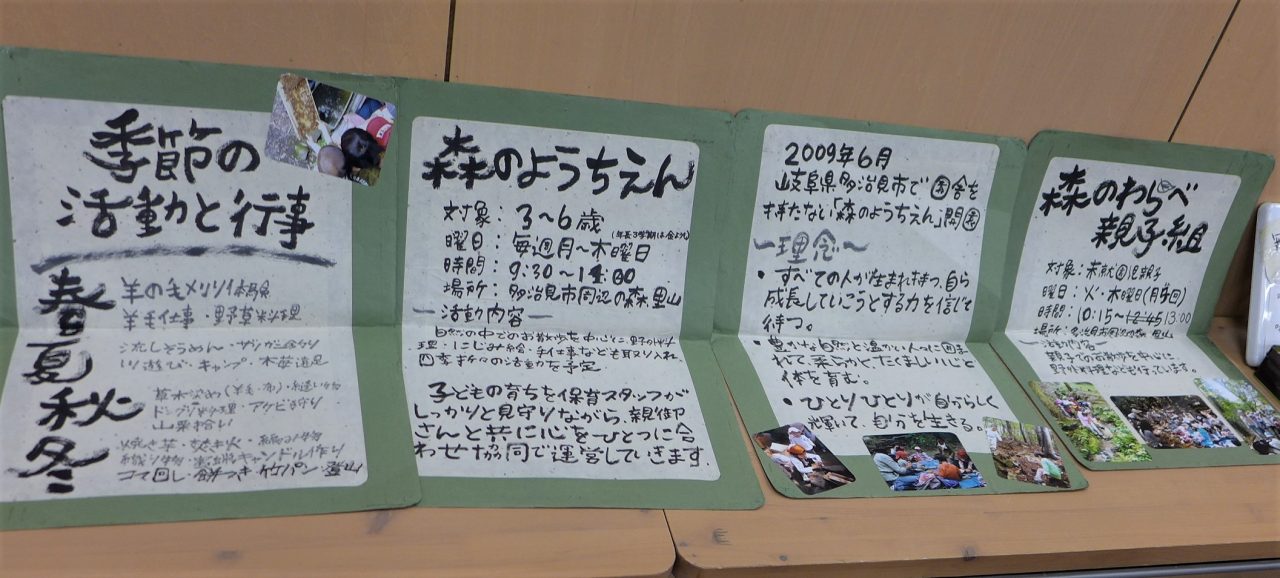 季節の
活動と行事
春 羊の毛メリリ体験
羊毛仕事・野草料理
夏 流しそうめん・ザリガニ釣り
川遊び・キャンプ・木苺遠足
秋 草木ぞめ(羊毛・布)・縫い物
ドングリ料理・アケビ狩り
山栗拾い
冬 焼き芋・焚き火・編み物
織り物・蜜蝋キャンドル作り
コマ回し・餅つき・竹パン・登山
森のようちえん
対象：3〜6歳
曜日：毎週月〜木曜日(年長3学期は金よう)
時間：9:30〜14:00
場所：多治見市周辺の森・里山
―活動内容―
自然の中でのお散歩を中心に、野外料
理・にじみ絵・手仕事なども取り入れ、
四季折々の活動を予定。
子どもの育ちを保育スタッフが
しっかりと見守りながら、親御
さんと共に心をひとつに合
わせ協同で運営していきます。
2009年6月
岐阜県多治見市で園舎を
持たない「森のようちえん」開園
〜理念〜
・すべての人が生まれ持つ、自ら
成長していこうとする力を信じて
待つ。
・豊かな自然と温かい人々に囲ま
れて、柔らかく、たくましい心と
体を育む。
・ひとりひとりが自分らしく
輝いて、自分を生きる。
森のわらべ
親子組
対象：未就園児親子
曜日：火・木曜日(月 回)
時間：10:15〜12:45 13:00
場所：多治見市周辺の森・里山
―活動内容―
親子でのお散歩を中心に
野外料理なども行っています。